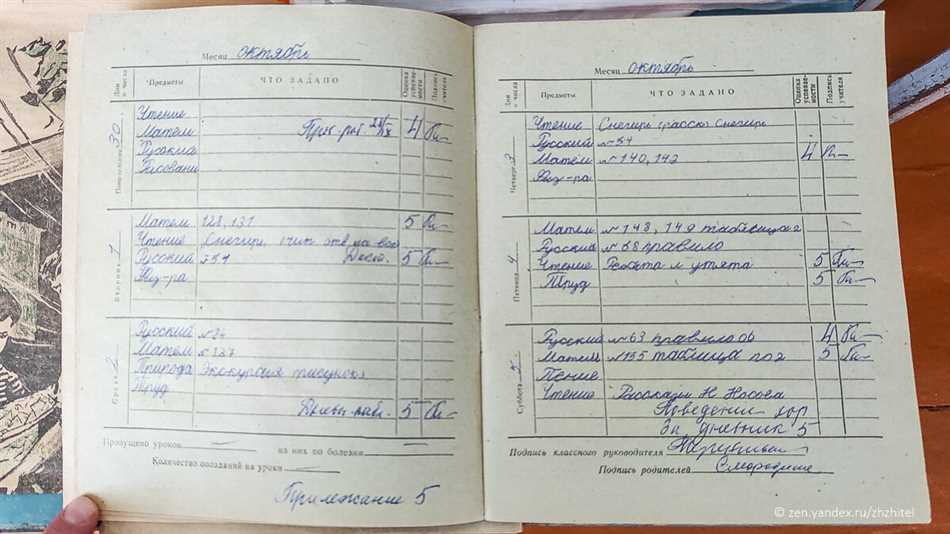 Месяц октябрь
Дни и числа Предметы ЧТО ЗАДАНО Оценка успеваемости Подпись учителя
Понедельник 30
Чтение
Матем 4
Русский
Рисовани
Вторник 1
Матем 128, 131 5
Чтение Снегирь, чит отв на
Русский 5
Физ-ра
Среда 2
Русский
Матем
Природа Экскурсия рисунок
Труд
5
Пропущено уроков — из них по болезни
Количество опозданий на уроки —
Прилежание 5
Месяц октябрь
Дни и числа Предметы ЧТО ЗАДАНО Оценка успеваемости Подпись учителя
Четверг 3
Чтение Снегирь расск Снегирь
Русский №54
Матем №140, 142 4
Физ-ра
Пятница 4
Матем №148, 149 таблица
Русский №58 правило
Чтение Ребята и утята 5
Труд 5
Суббота 5
Русский №63 правило 4
Матем №155 таблица 5
Пение
Чтение Рассказы Н Носова
Поведение хор
За дневник 5
Подпись классного руководителя
Подпись родителей
© zen.yandex.ru/zhzhitel